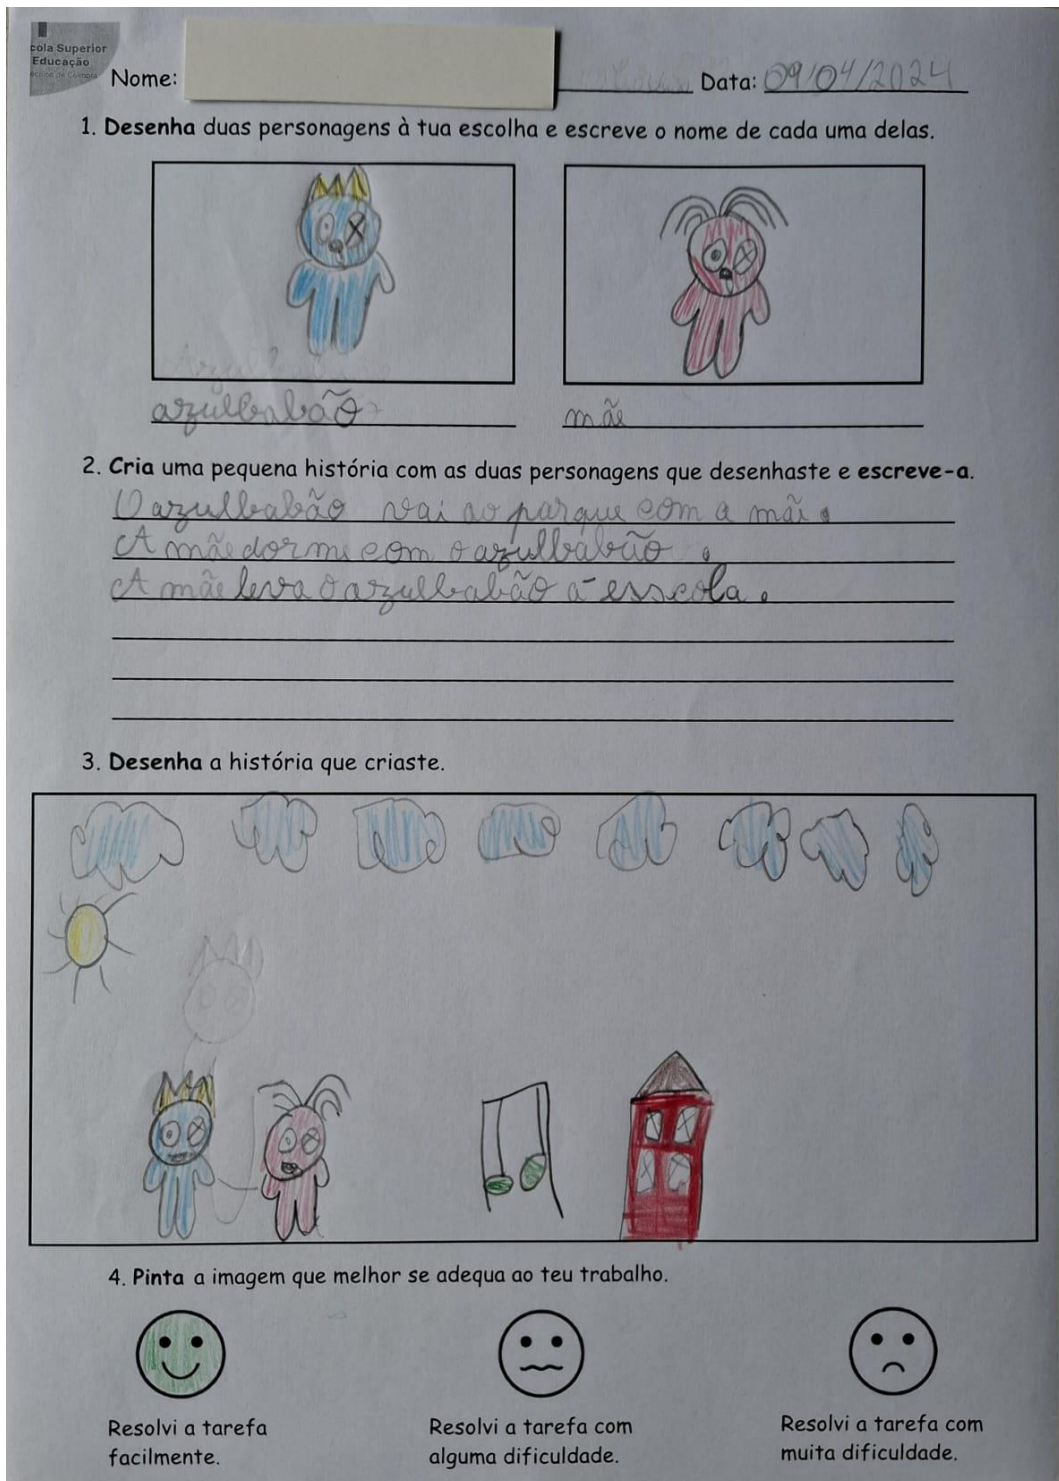 cola Superior
Educação
Nome: Data: 09/04/2024
1. Desenha duas personagens à tua escolha e escreve o nome de cada uma delas.
azulbabão mãe
2. Cria uma pequena história com as duas personagens que desenhaste e escreve-a.
O azulbabão vai ao parque com a mãi.
A mãe dorme com o azulbabão.
A mãe leva o azulbabão à esscola.
3. Desenha a história que criaste.
4. Pinta a imagem que melhor se adequa ao teu trabalho.
Resolvi a tarefa Resolvi a tarefa com Resolvi a tarefa com
facilmente. alguma dificuldade. muita dificuldade.